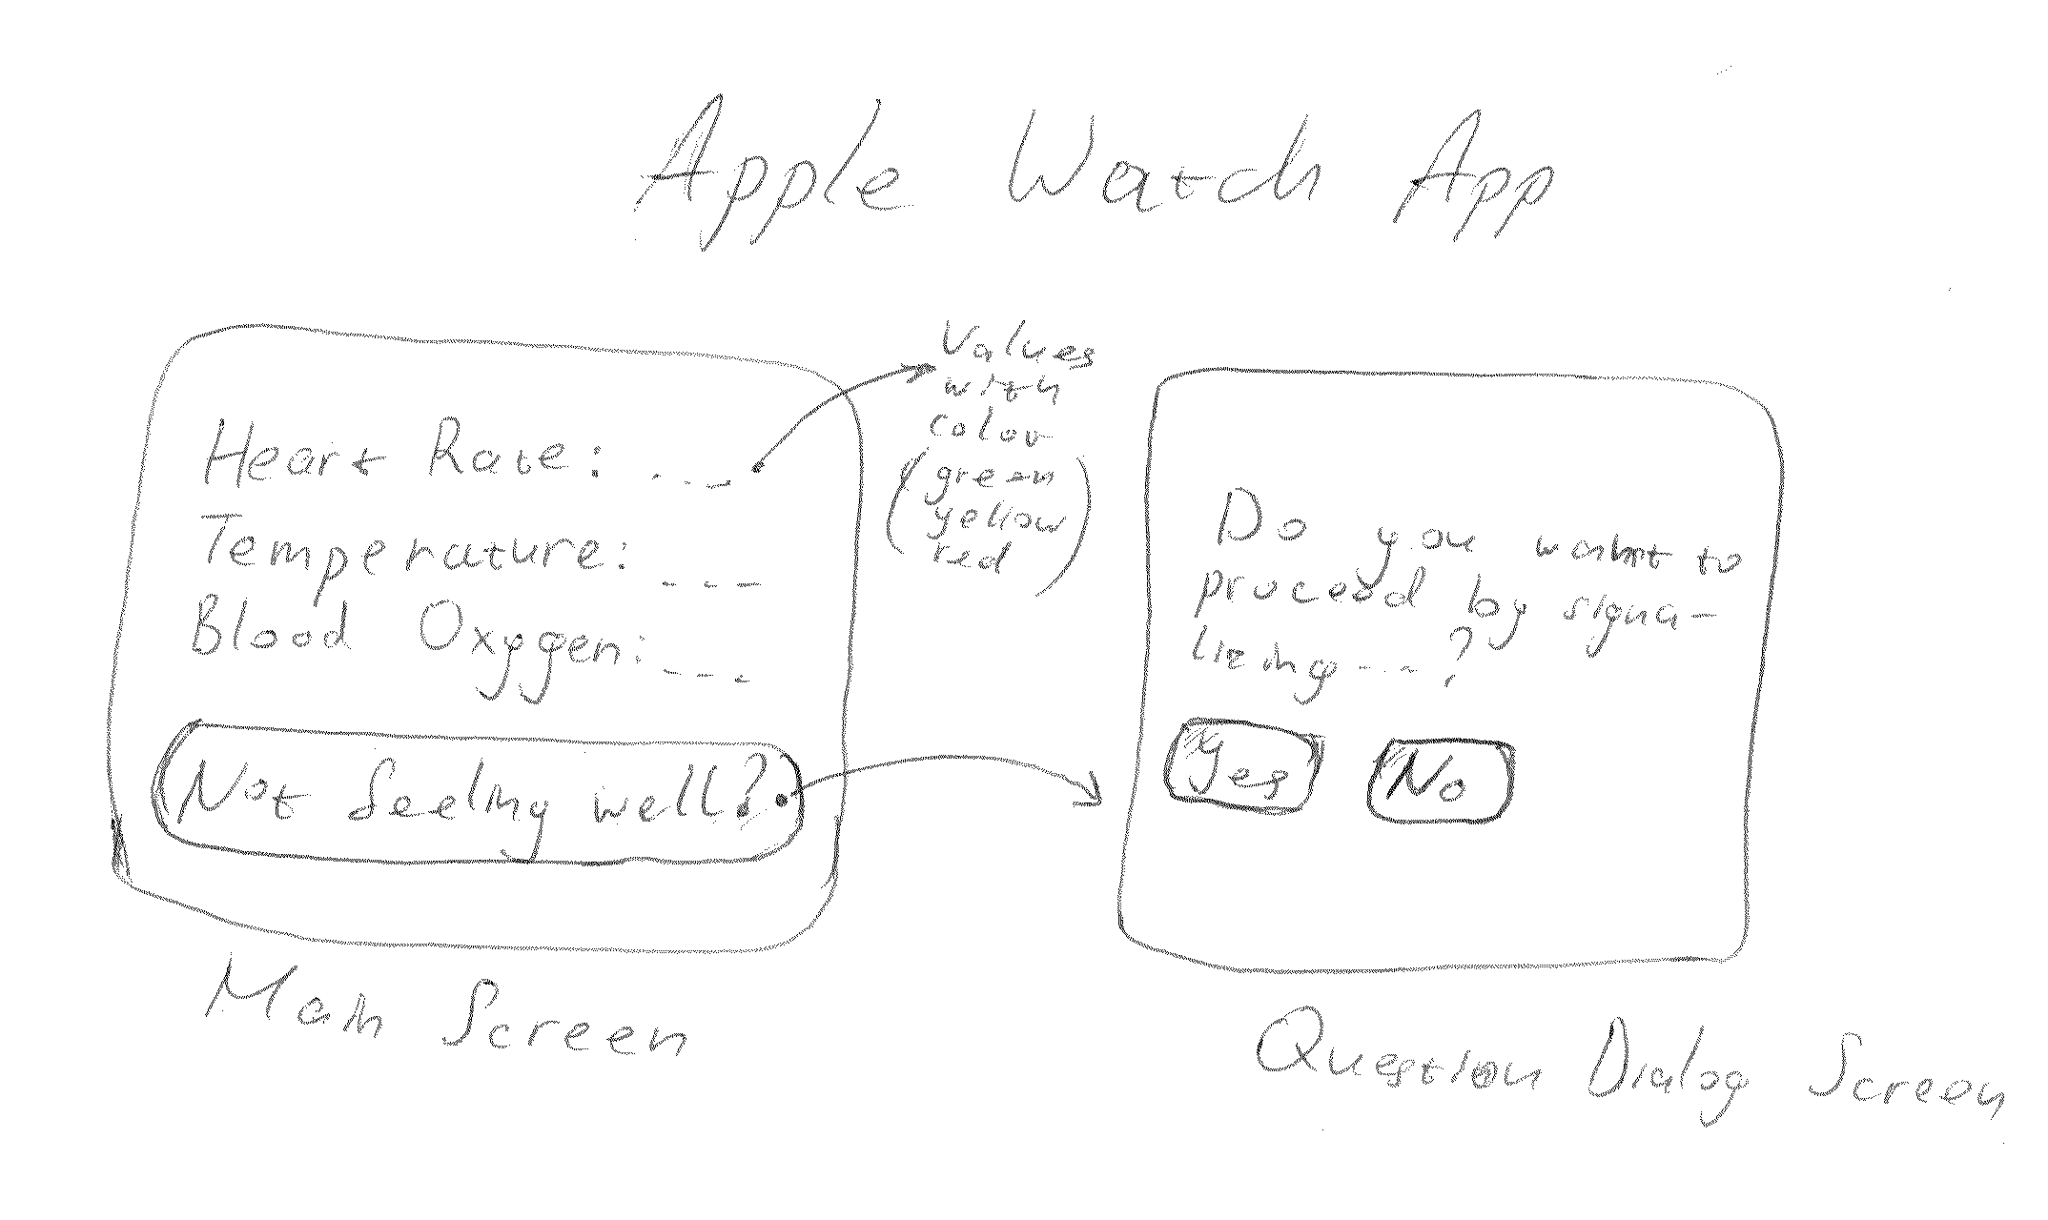 Apple Watch App
Heart Rate: ---
Temperature: ---
Blood Oxygen: ---
Not feeling well?
Main Screen
Values
with
color
(green
yellow
red)
Do you want to
proceed by signa-
lizing ---?
Yes
No
Question Dialog Screen